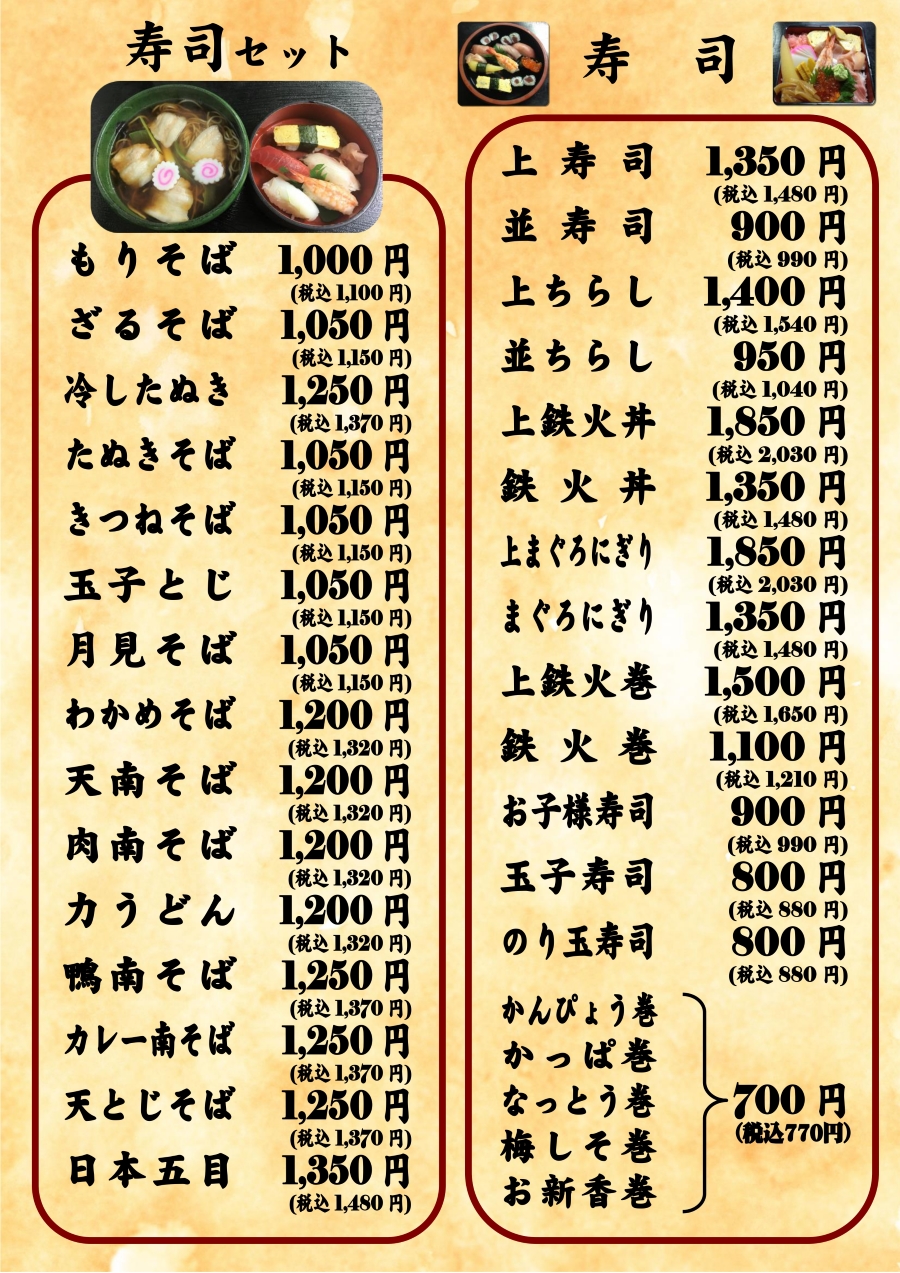 寿司セット
もりそば 1,000 円
(税込 1,100 円)
ざるそば 1,050 円
(税込 1,150 円)
冷したぬき 1,250 円
(税込 1,370 円)
たぬきそば 1,050 円
(税込 1,150 円)
きつねそば 1,050 円
(税込 1,150 円)
玉子とじ 1,050 円
(税込 1,150 円)
月見そば 1,050 円
(税込 1,150 円)
わかめそば 1,200 円
(税込 1,320 円)
天南そば 1,200 円
(税込 1,320 円)
肉南そば 1,200 円
(税込 1,320 円)
力うどん 1,200 円
(税込 1,320 円)
鴨南そば 1,250 円
(税込 1,370 円)
カレー南そば 1,250 円
(税込 1,370 円)
天とじそば 1,250 円
(税込 1,370 円)
日本五目 1,350 円
(税込 1,480 円)
寿司
上寿司 1,350 円
(税込 1,480 円)
並寿司 900 円
(税込 990 円)
上ちらし 1,400 円
(税込 1,540 円)
並ちらし 950 円
(税込 1,040 円)
上鉄火丼 1,850 円
(税込 2,030 円)
鉄火丼 1,350 円
(税込 1,480 円)
上まぐろにぎり 1,850 円
(税込 2,030 円)
まぐろにぎり 1,350 円
(税込 1,480 円)
上鉄火巻 1,500 円
(税込 1,650 円)
鉄火巻 1,100 円
(税込 1,210 円)
お子様寿司 900 円
(税込 990 円)
玉子寿司 800 円
(税込 880 円)
のり玉寿司 800 円
(税込 880 円)
かんぴょう巻
かっぱ巻
なっとう巻
梅しそ巻
お新香巻
700 円
(税込770円)